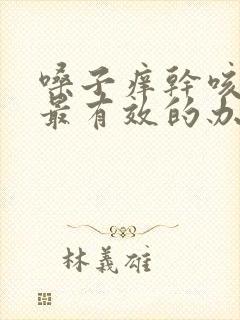 嗓子痒幹咳
最有效的办
林義雄